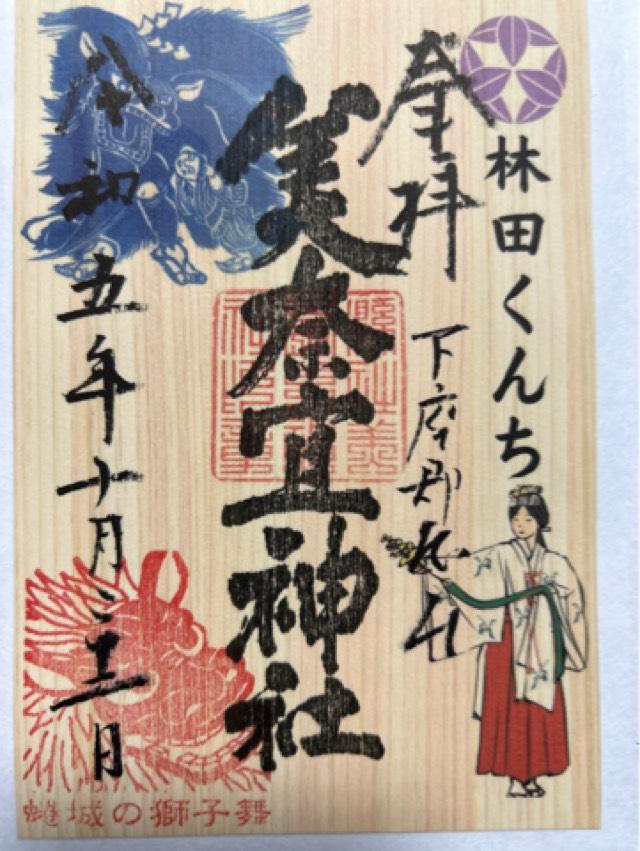 林田くんち
奉拝
下座郡
美奈宜神社
令和五年十月二十二日
蜷城の獅子舞